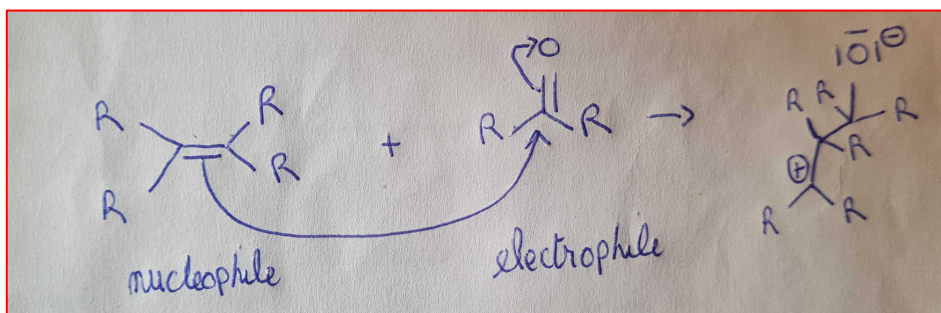 O
|O̅|⊖
R R
R R R
+ R R →
R R R
⊕
R R
nucleophile electrophile